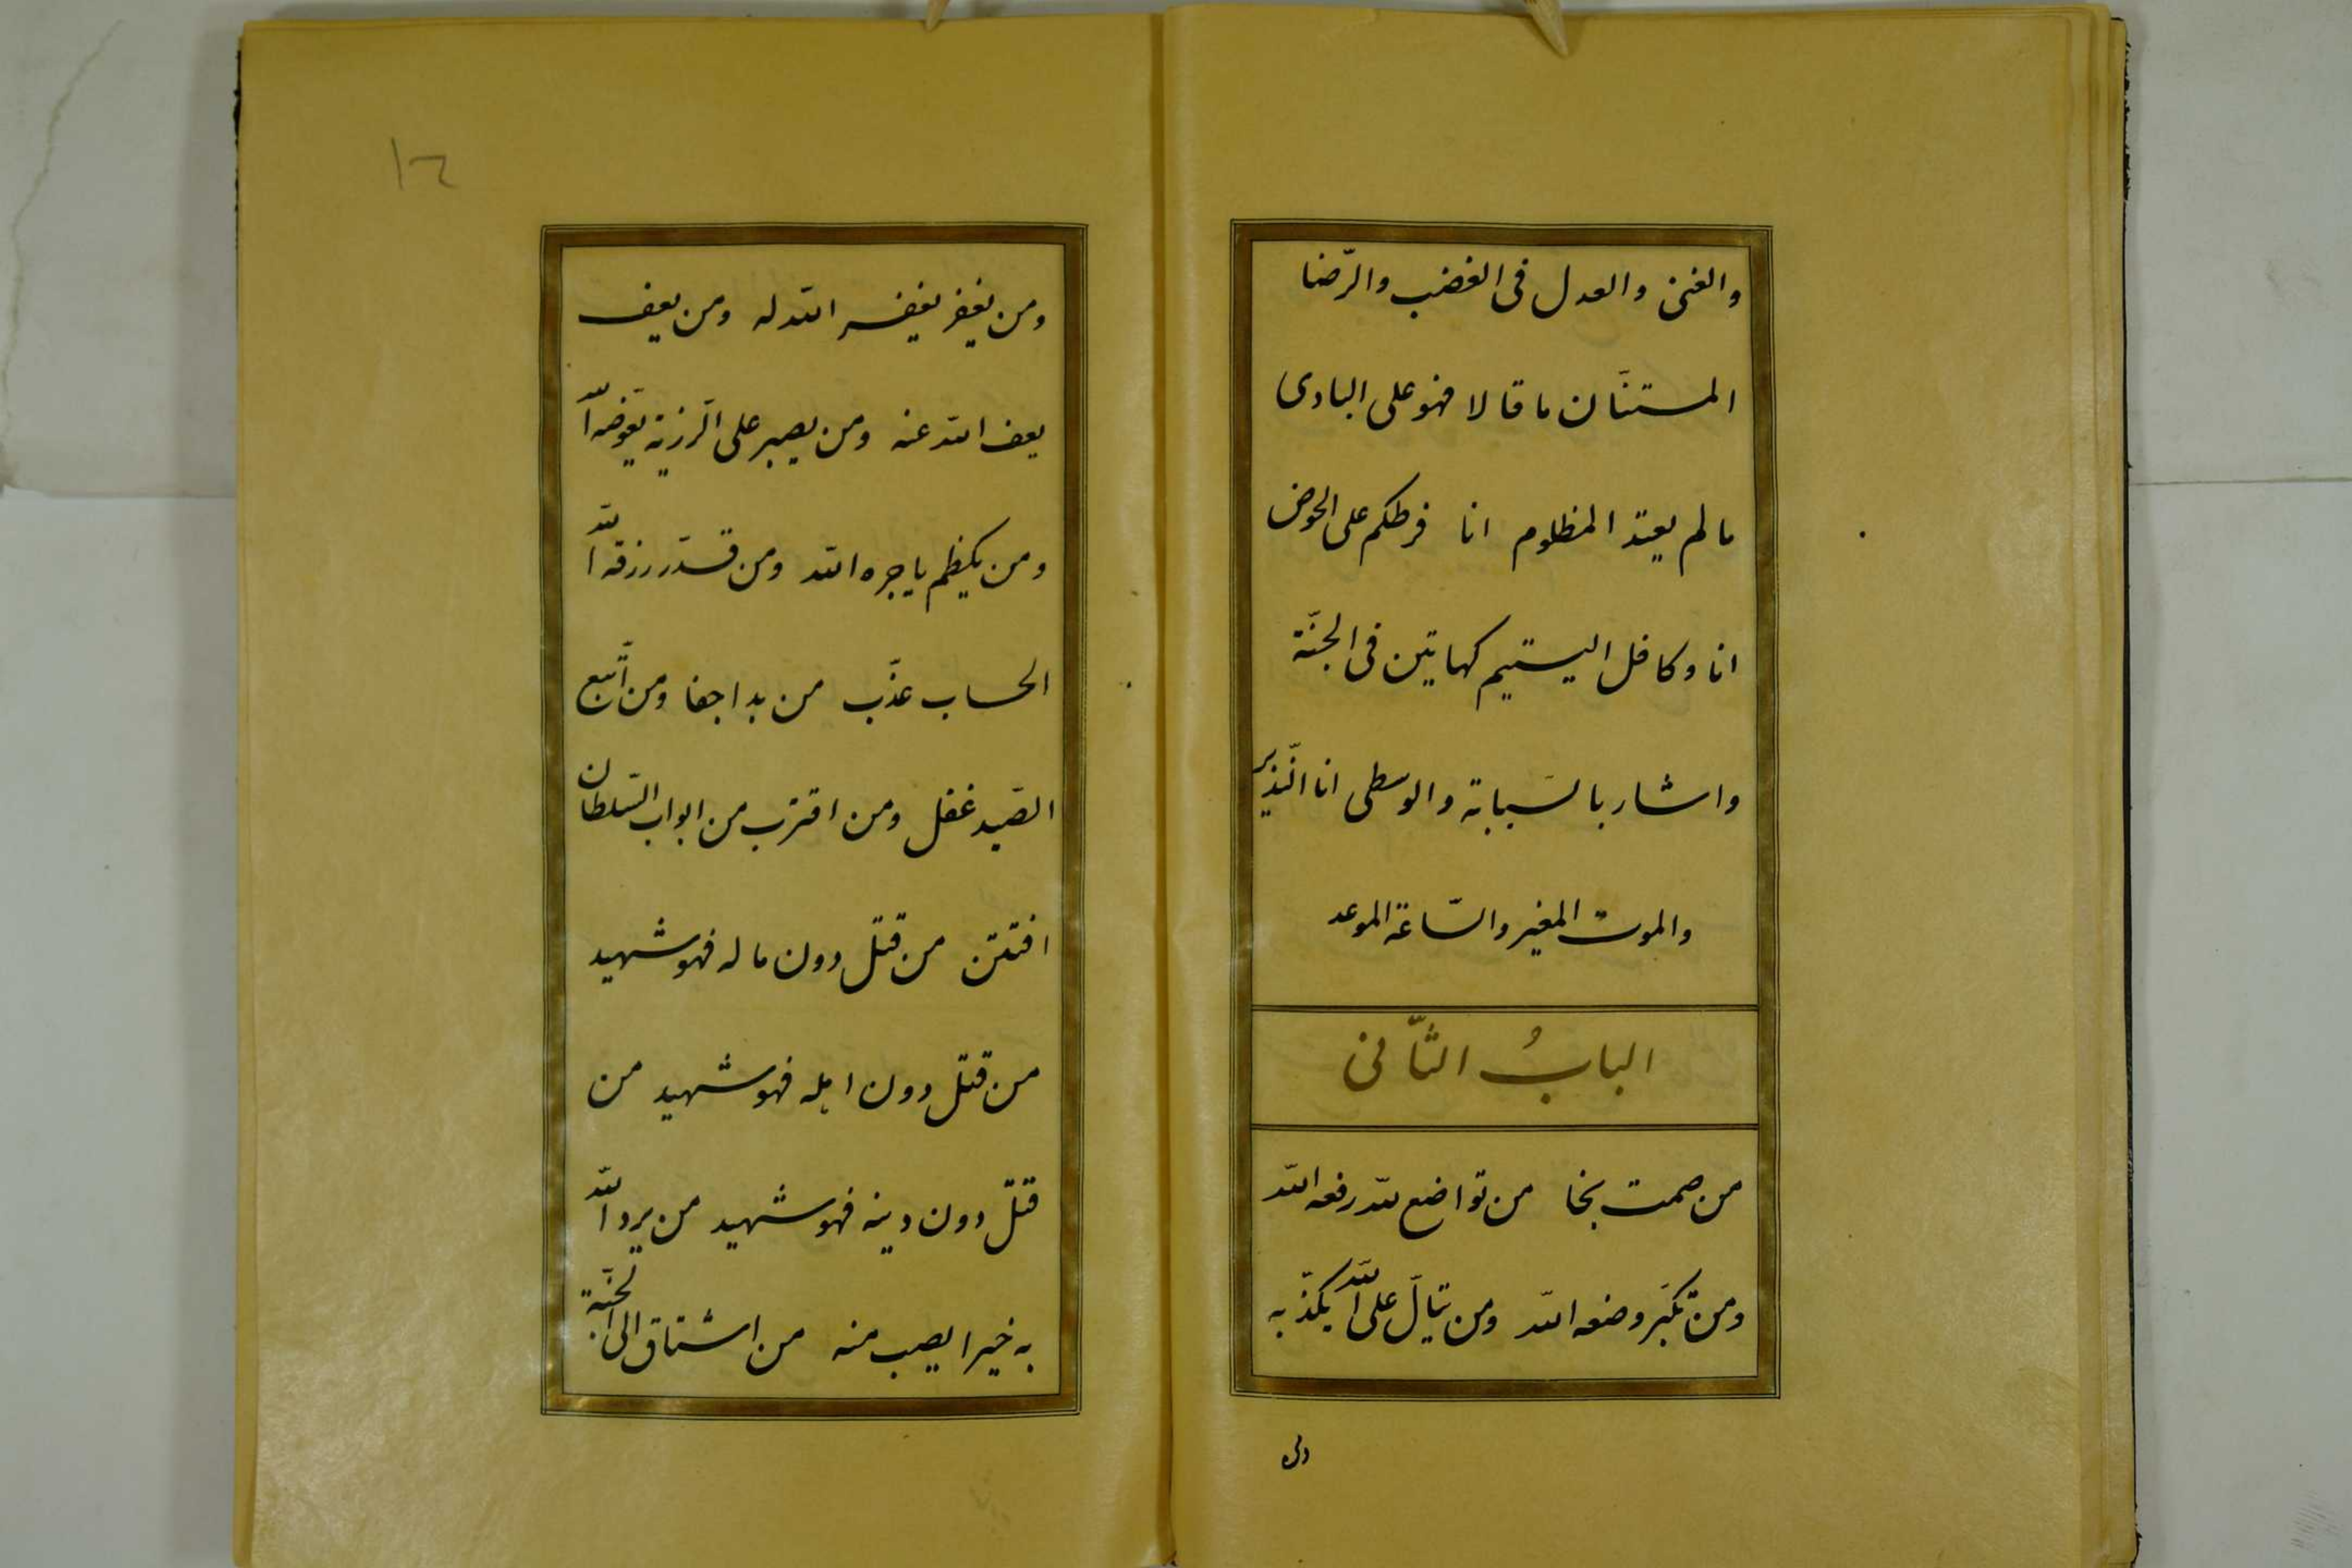 والغنى والعدل فى الغضب والرّضا
المستبّان ما قالا فهو على البادى
ما لم يعتد المظلوم انا فرطكم على الحوض
انا وكافل اليتيم كهاتين فى الجنّة
واشار بالسبابة والوسطى انا النّذير
والموت المغير والسّاعة الموعد
البابُ الثّانى
من صمت نجا من تواضع لله رفعه الله
ومن تكبّر وضعه الله ومن يتألّ على الله يكذّبه
١٢
ومن يغفر يغفر الله له ومن يعف
يعف الله عنه ومن يصبر على الرّزية يعوّضه الله
ومن يكظم ياجره الله ومن قدّر رزقه الله
الحساب عذّب من بدا جفا ومن اتّبع
الصّيد غفل ومن اقترب من ابواب السّلطان
افتتن من قتل دون ماله فهو شهيد
من قتل دون اهله فهو شهيد من
قتل دون دينه فهو شهيد من يرد الله
به خيرا يصب منه من اشتاق الى الجنّة